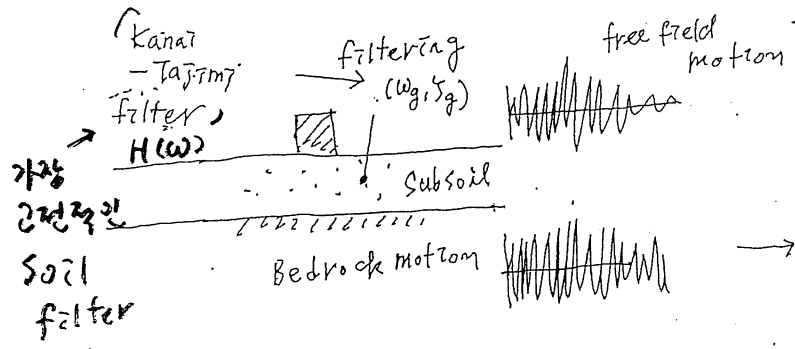 Kanai
- Tajimi
filter,
H(ω)
가장
고전적인
Soil
filter
filtering
(ωg, ζg)
free field
motion
Subsoil
Bedrock motion